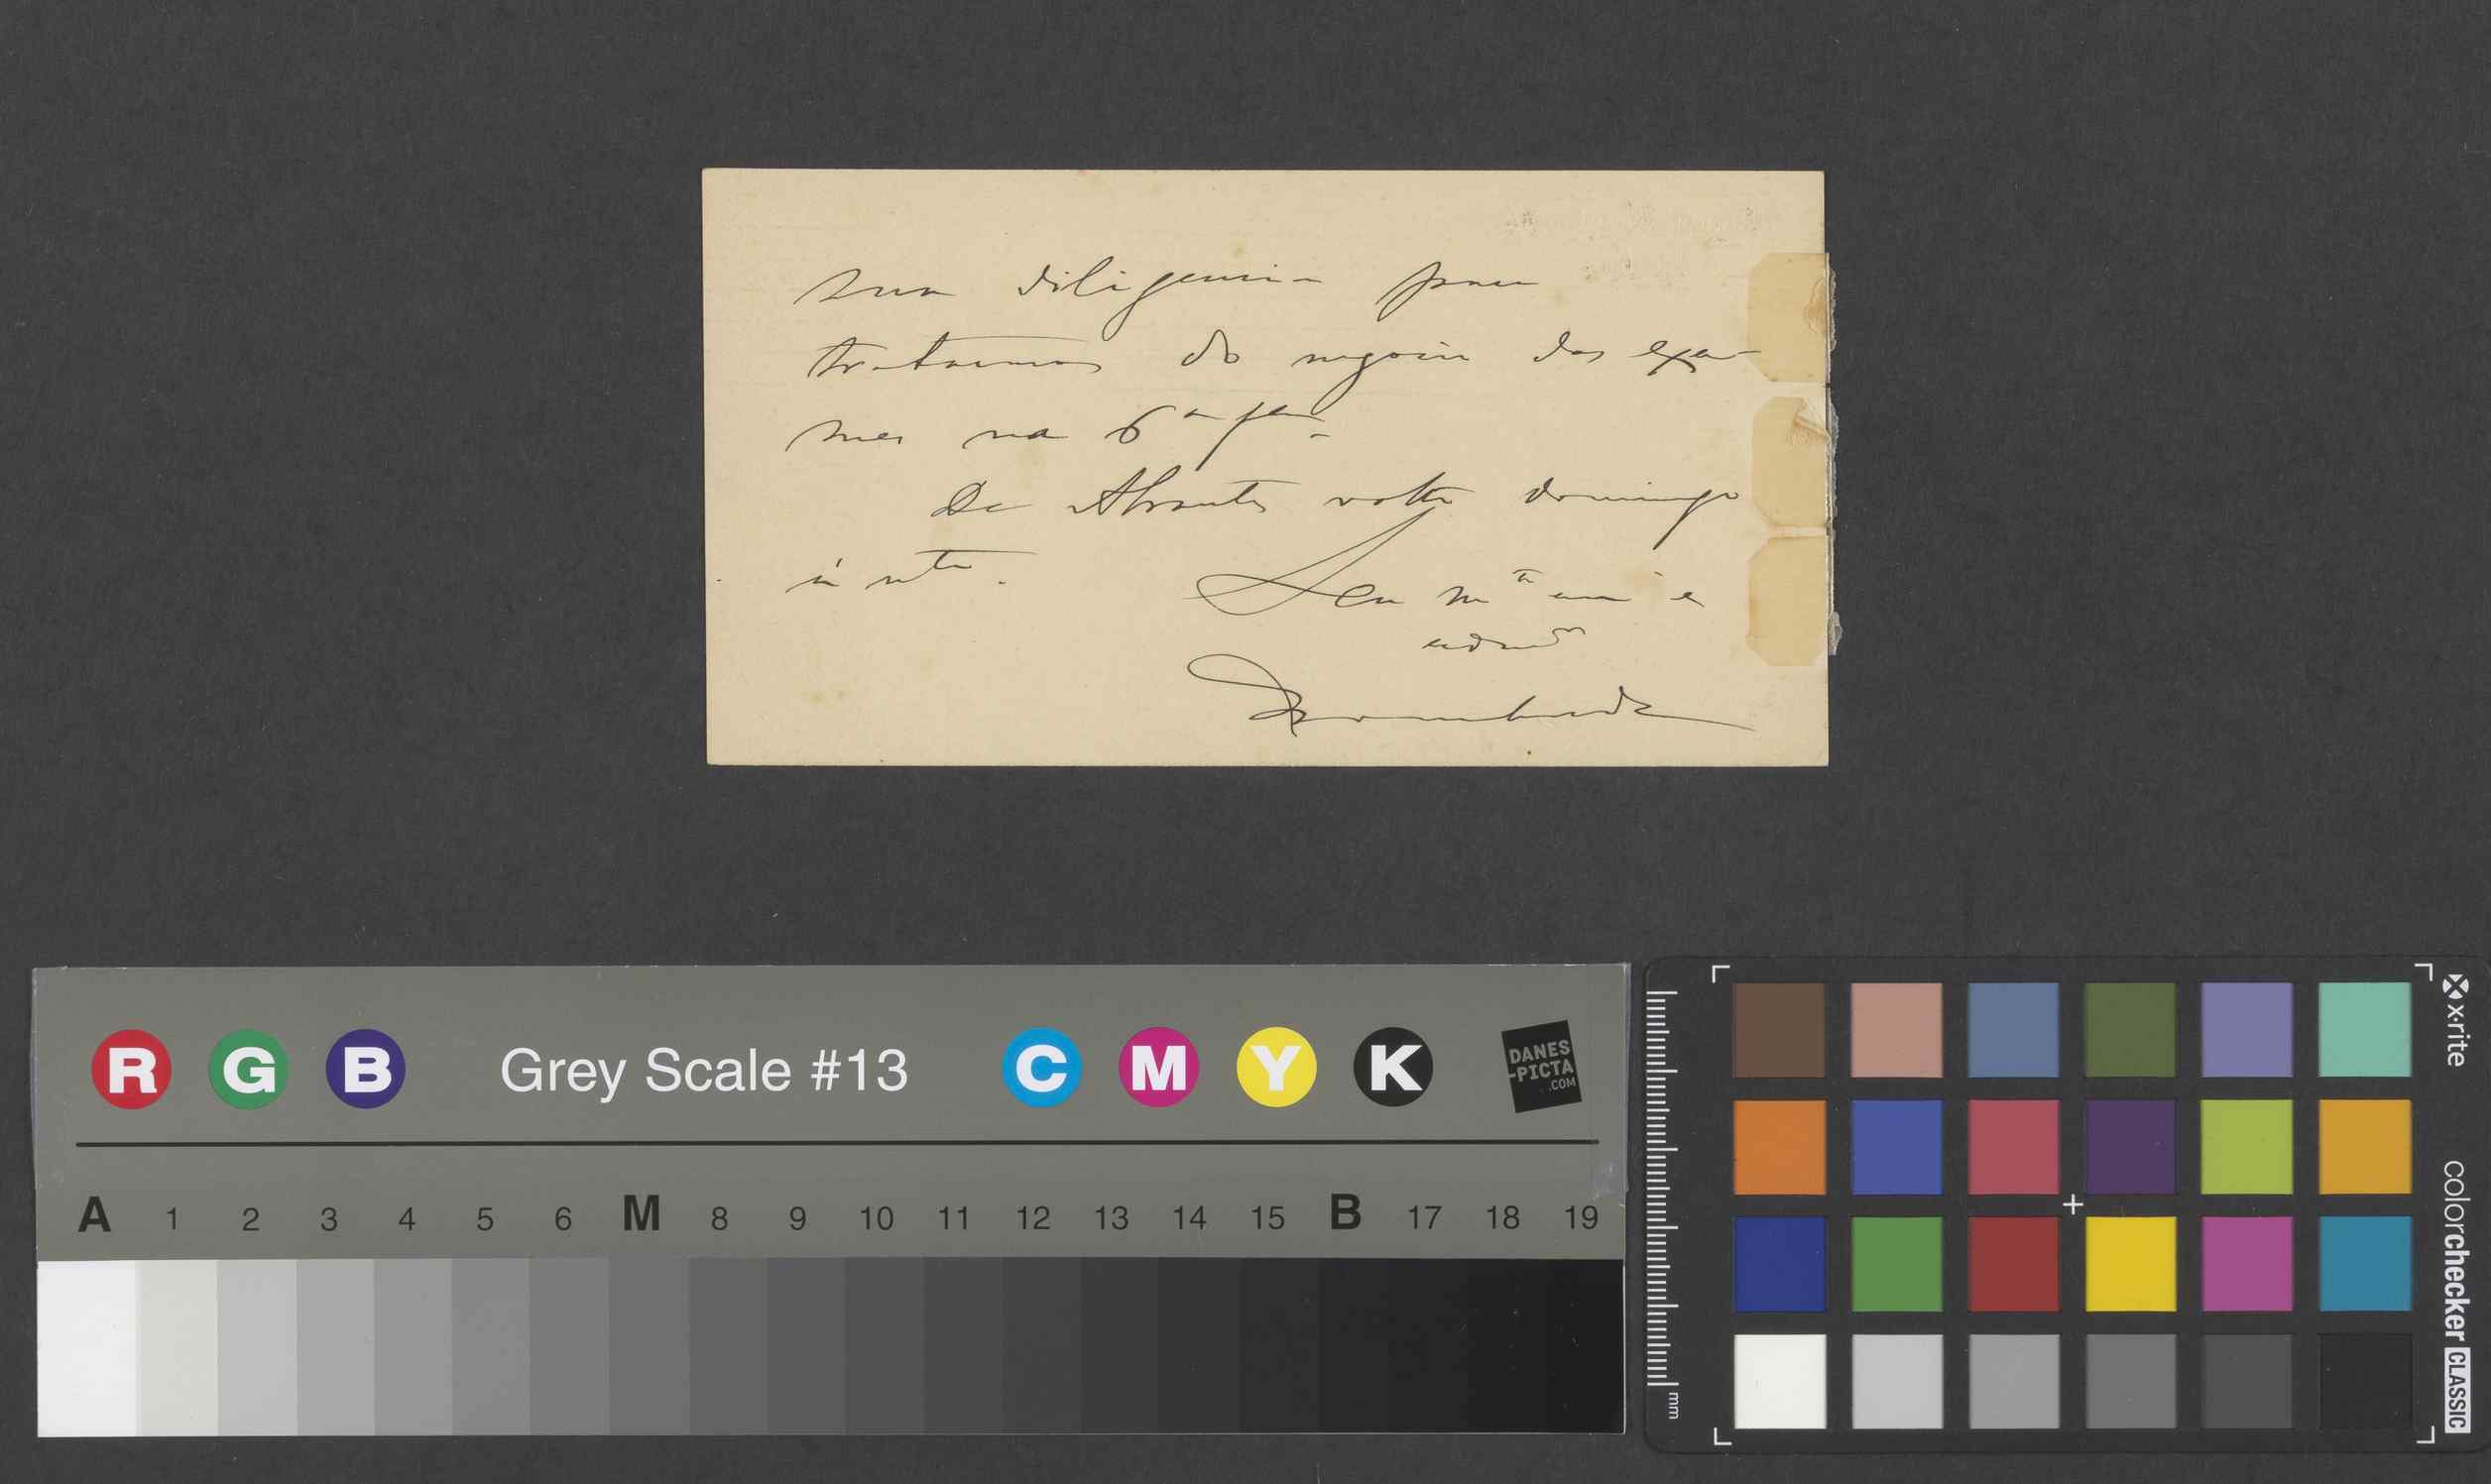 sua diligencia para
tratarmos do negocio dos exa-
mes na 6ª feira
De Abrantes volto domingo
á nte.
Seu mto am e
admor
Bombarda
R G B Grey Scale #13 C M Y K DANES-PICTA.COM
A 1 2 3 4 5 6 M 8 9 10 11 12 13 14 15 B 17 18 19
x-rite
colorchecker CLASSIC
mm